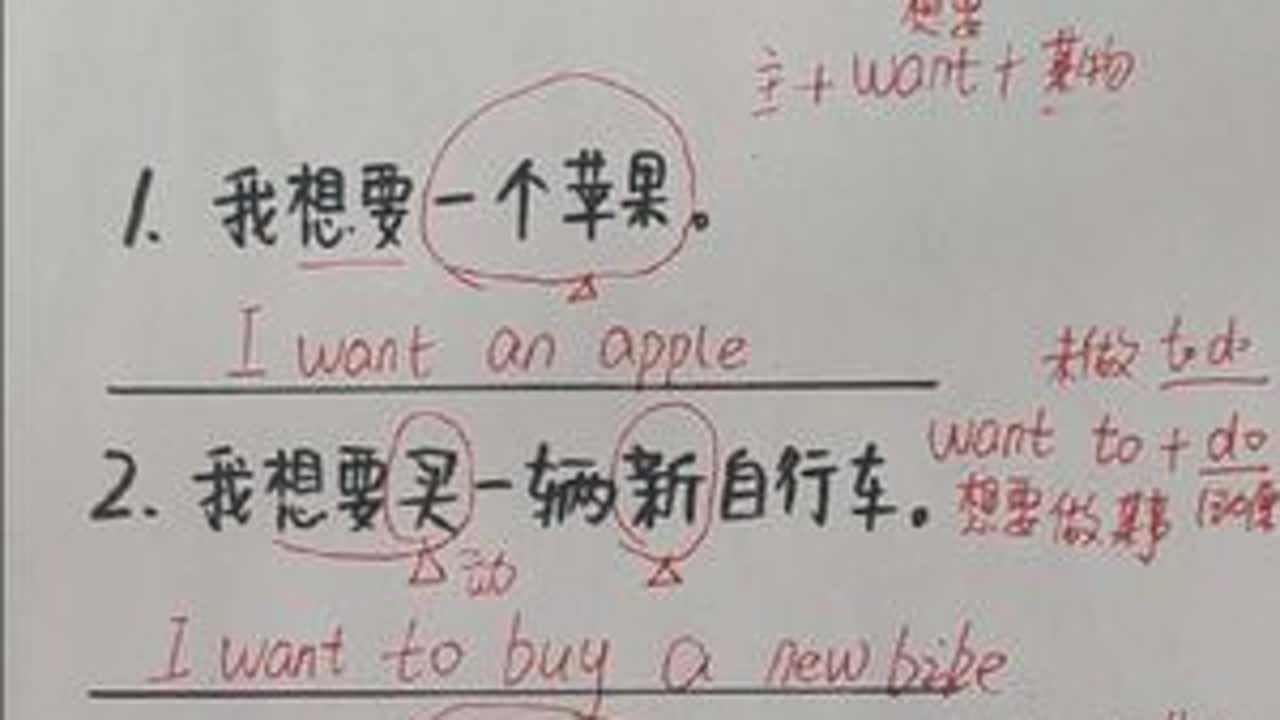 想要
主+want+某物
1. 我想要一个苹果。
I want an apple
未做 to do
2. 我想要买一辆新自行车。
want to + do
想要做某事
动
I want to buy a new bike